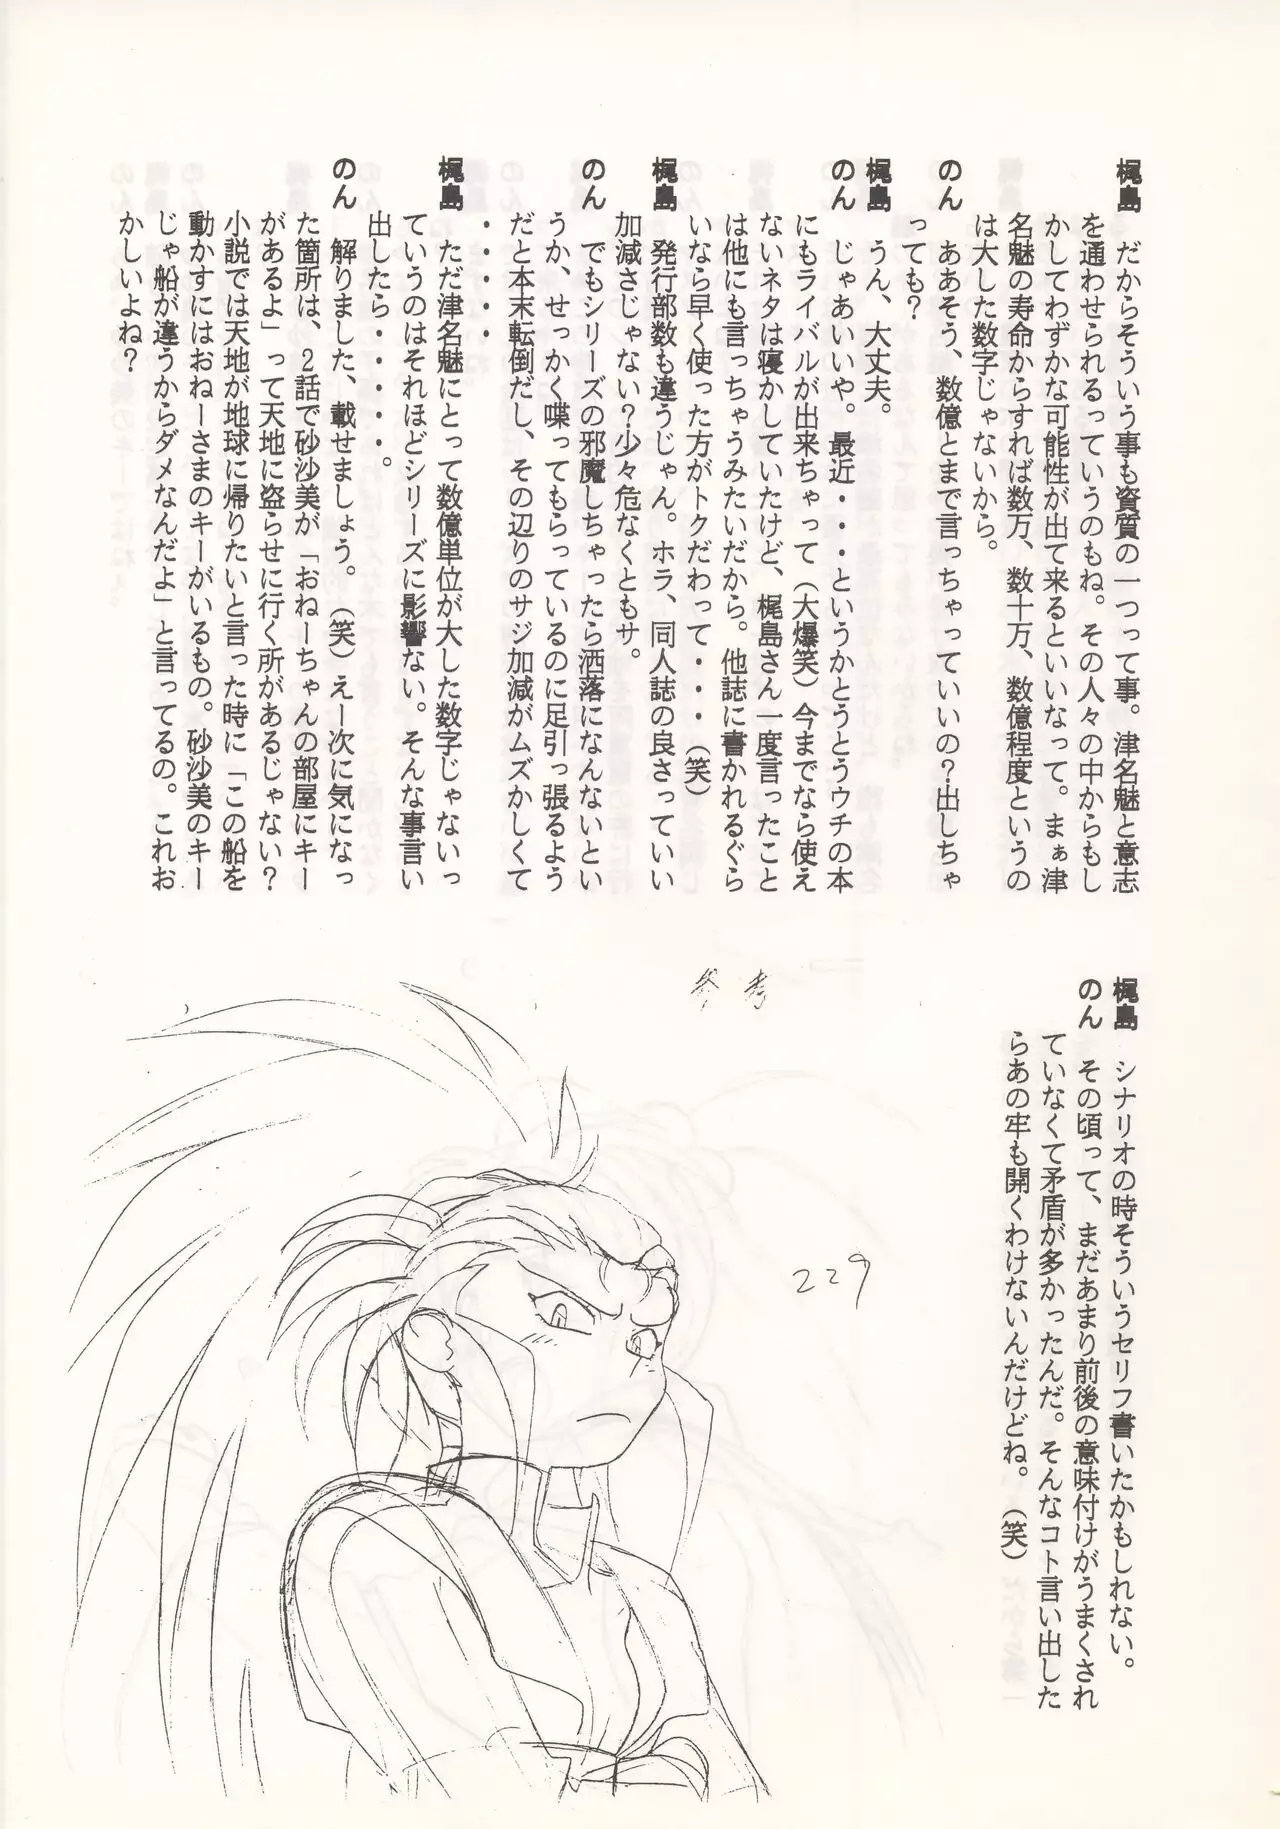 梶島　だからそういう事も資質の一つって事。津名魅と意志
を通わせられるっていうのもね。その人々の中からもし
かしてわずかな可能性が出て来るといいなって。まぁ津
名魅の寿命からすれば数万、数十万、数億程度というの
は大した数字じゃないから。
のん　ああそう、数億とまで言っちゃっていいの？出しちゃ
っても？
梶島　うん、大丈夫。
のん　じゃあいいや。最近・・・というかとうとうウチの本
にもライバルが出来ちゃって（大爆笑）今までなら使え
ないネタは寝かしていたけど、梶島さん一度言ったこと
は他にも言っちゃうみたいだから。他誌に書かれるぐら
いなら早く使った方がトクだわって・・・（笑）
梶島　発行部数も違うじゃん。ホラ、同人誌の良さっていい
加減さじゃない？少々危なくともサ。
のん　でもシリーズの邪魔しちゃったら洒落になんないとい
うか、せっかく喋ってもらっているのに足引っ張るよう
だと本末転倒だし、その辺りのサジ加減がムズかしくて
・・・・・・
梶島　ただ津名魅にとって数億単位が大した数字じゃないっ
ていうのはそれほどシリーズに影響ない。そんな事言い
出したら・・・・・。
のん　解りました、載せましょう。（笑）えー次に気になっ
た箇所は、２話で砂沙美が「おねーちゃんの部屋にキー
があるよ」って天地に盗らせに行く所があるじゃない？
小説では天地が地球に帰りたいと言った時に「この船を
動かすにはおねーさまのキーがいるもの。砂沙美のキー
じゃ船が違うからダメなんだよ」と言ってるの。これお
かしいよね？
梶島　シナリオの時そういうセリフ書いたかもしれない。
のん　その頃って、まだあまり前後の意味付けがうまくされ
ていなくて矛盾が多かったんだ。そんなコト言い出した
らあの牢も開くわけないんだけどね。（笑）
参考
229